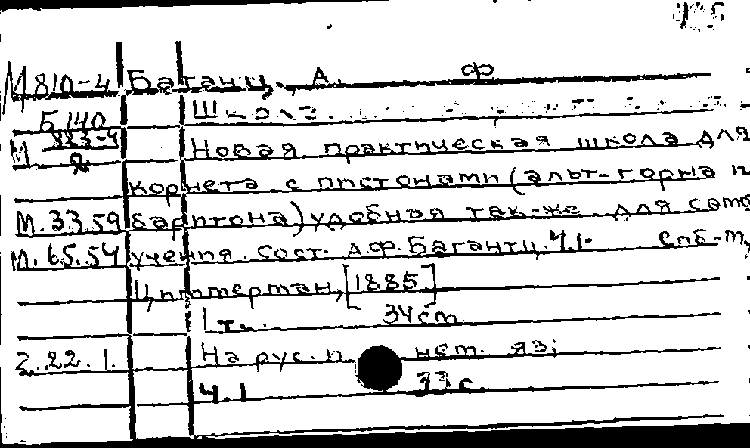 М810-4 Багантц, А. Ф
Б140 Школа.
М 883-4 Новая практическая школа для
я корнета с пистонами (альт-горна и
М.3359 баритона) удобная так-же для само
М.65.54 учения. Сост. А.Ф. Багантц. Ч.1. Спб.-м,
Циммерман, [1885]
1 т. 34 см
2.22.1. На рус. и нем. яз;
Ч.1 33 с.